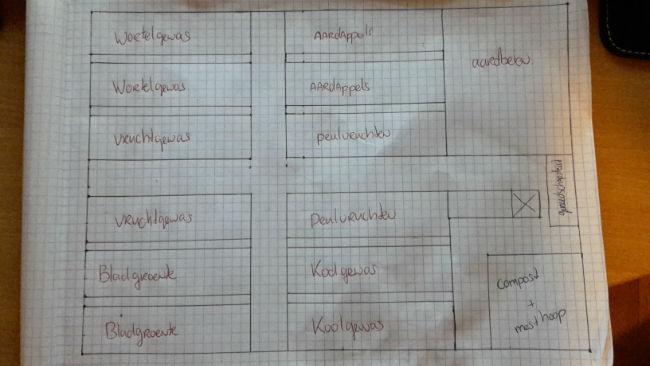 Wortelgewas
Wortelgewas
Vruchtgewas
Vruchtgewas
Bladgroente
Bladgroente
AARDAppels
AARDAppels
peulvruchten
peulvruchten
Koolgewas
Koolgewas
aardbeien
gereedschapskist
compost
+
mesthoop